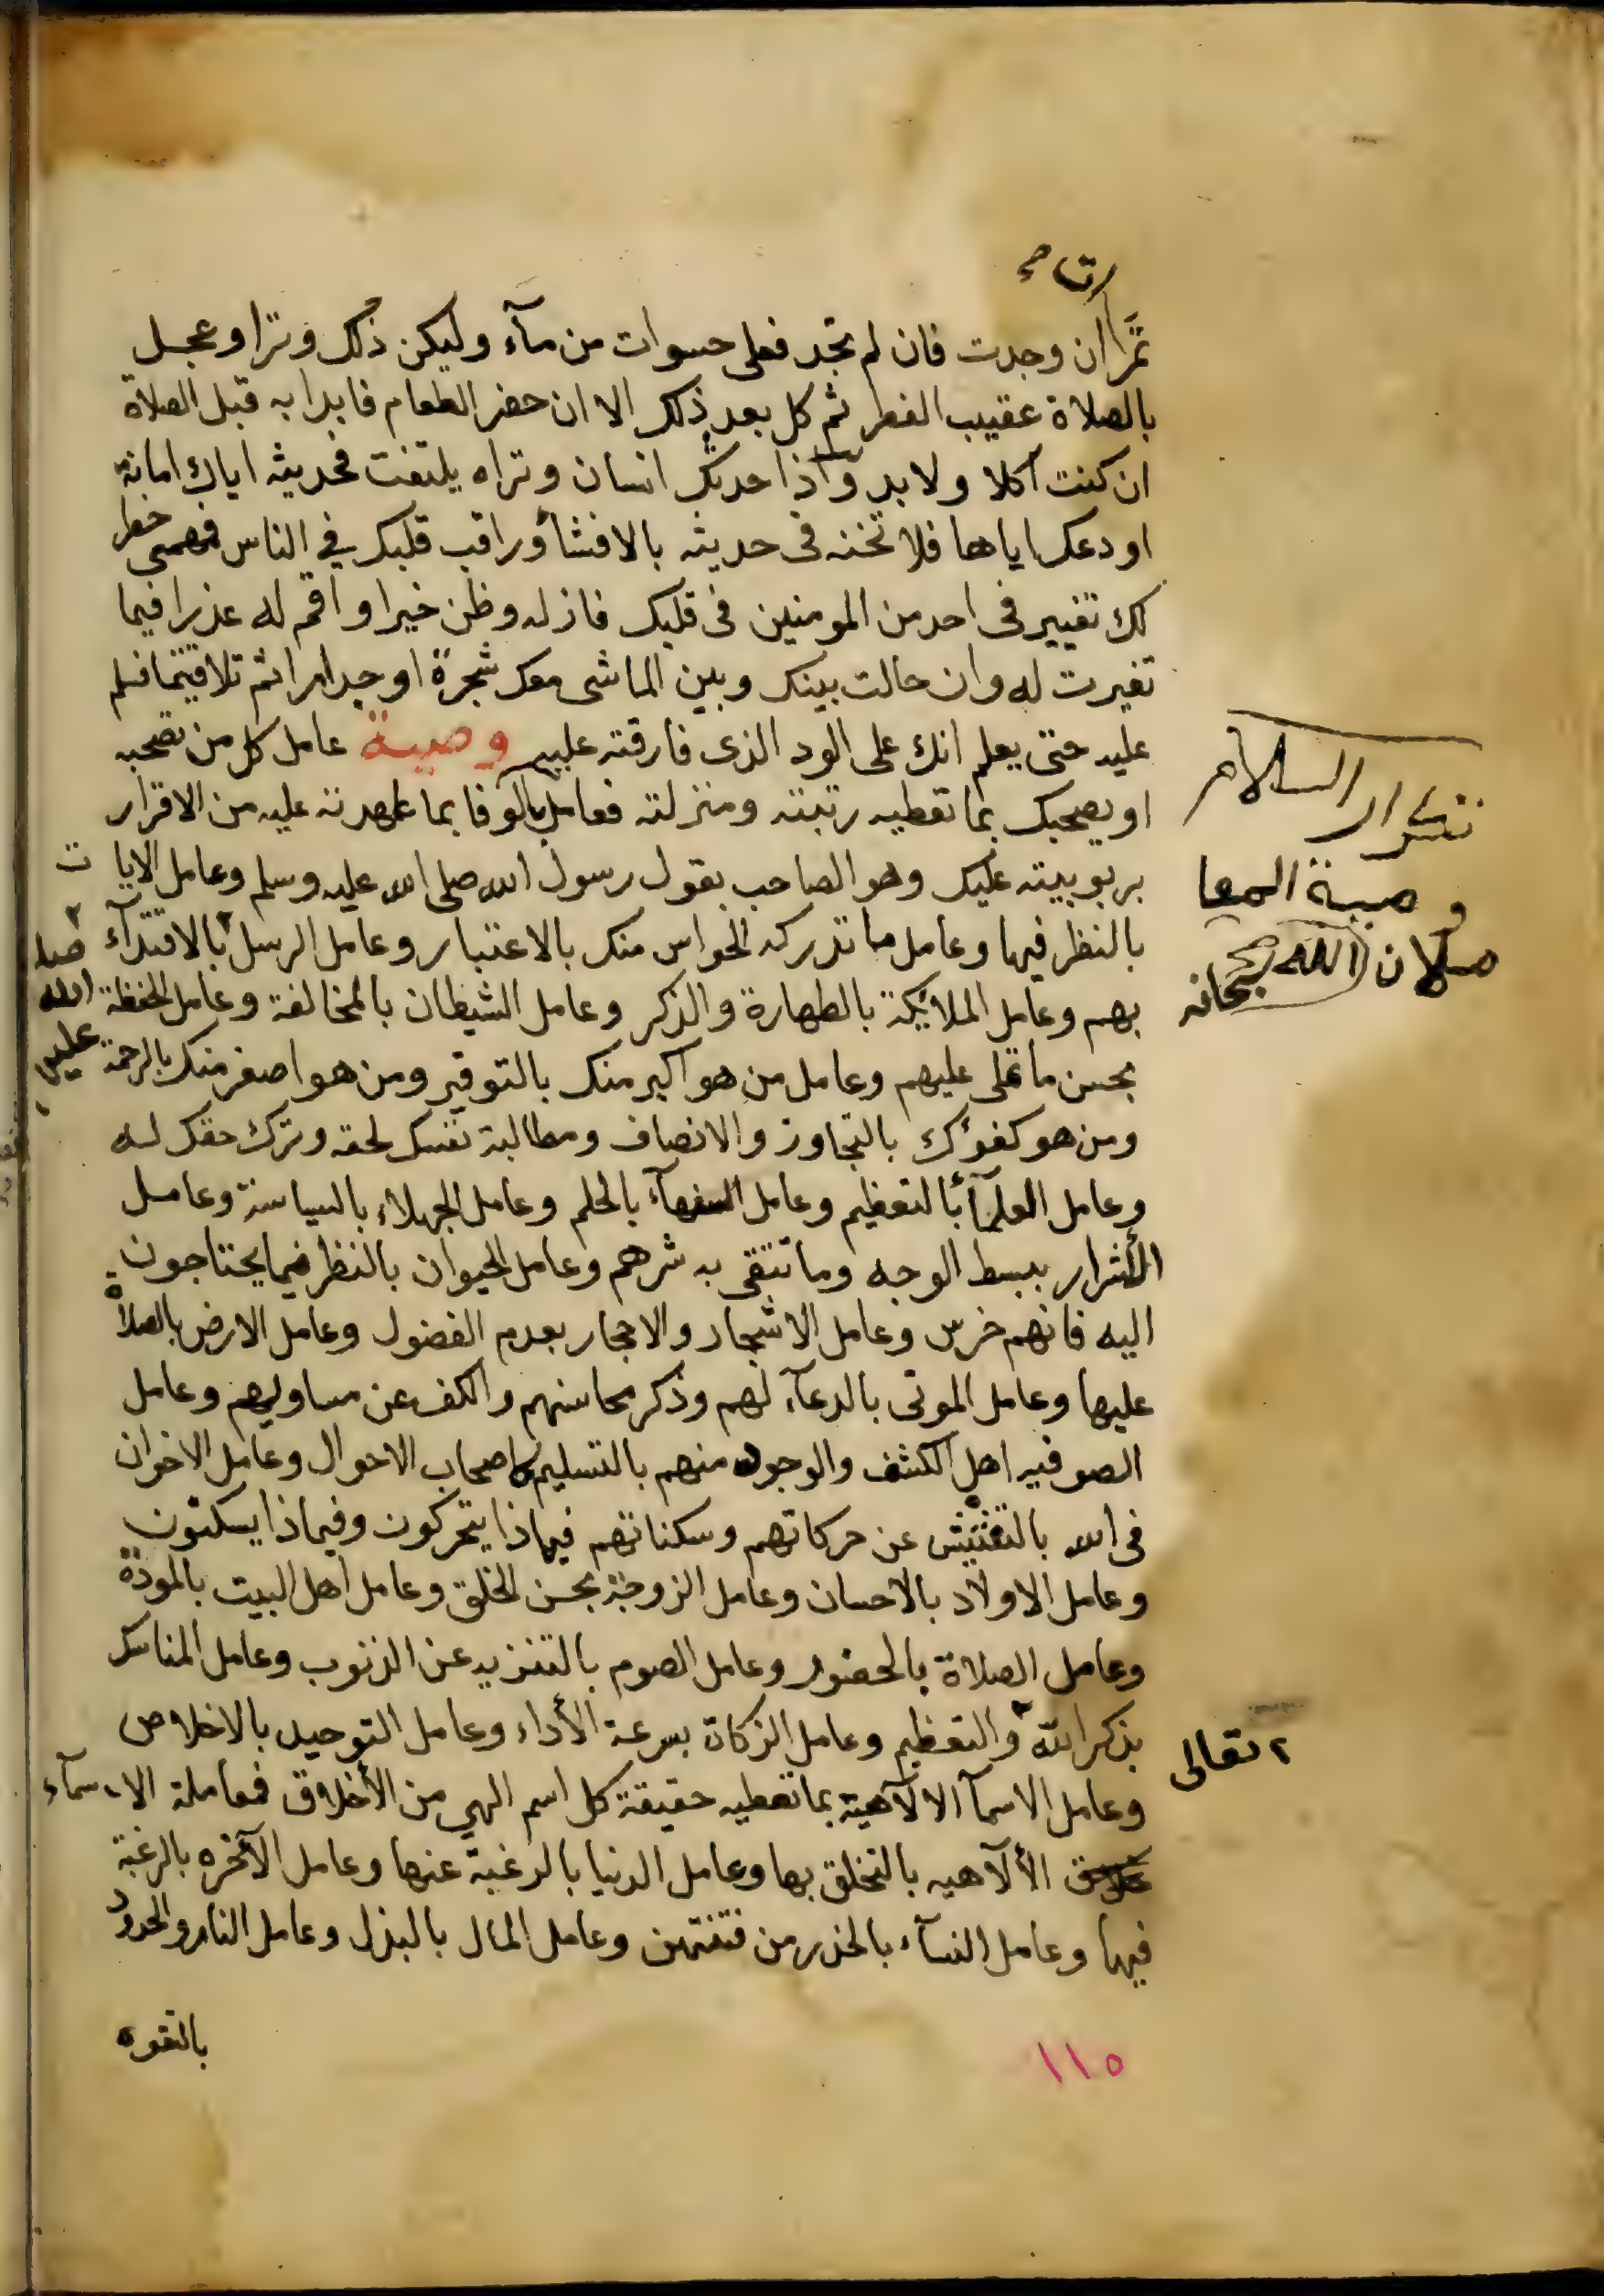 رتا م
تمرا ان وجدت فان لم تجد فعلى حسوات من مآء وليكن ذلك وترا وعجل
بالصلاة عقيب الفطر ثم كل بعد ذلك الا ان حضر الطعام فابدا به قبل الصلاة
ان كنت آكلا ولا بد واذا حدثك انسان وتراه يلتفت فحديثه اياك امانة
اودعك اياها فلا تخنه فى حديثه بالافشأ وراقب قلبك في الناس فمهمى خطر
لك تغيير فى احد من المومنين فى قلبك فازله وظن خيرا واقم له عذرا فيما
تغيرت له وان حالت بينك وبين الماشى معك شجرة او جدار اثم تلاقيتما فسلم
عليه حتى يعلم انك على الود الذى فارقته عليه وصية عامل كل من تصحبه
او يصحبك بما تعطيه رتبته ومنزلته فعامل بالوفا بما عاهدته عليه من الاقرار
بربوبيته عليك وهو الصاحب بقول رسول الله صلى الله عليه وسلم وعامل الايات
بالنظر فيها وعامل ما تدركه الحواس منك بالاعتبار وعامل الرسل ٢ بالاقتدآء
بهم وعامل الملائيكة بالطهارة والذكر وعامل الشيطان بالمخالفة وعامل الحفظة
بحسن ما تملى عليهم وعامل من هو اكبر منك بالتوقير ومن هو اصغر منك بالرحمة
ومن هو كفوءك بالتجاوز والانصاف ومطالبة نفسك لحقه وترك حقك له
وعامل العلمآء بالتعظيم وعامل السفهآء بالحلم وعامل الجهلاء بالسياسة وعامل
الأشرار ببسط الوجه وما تتقى به شرهم وعامل الحيوان بالنظر فيما يحتاجون
اليه فانهم خرس وعامل الاشجار والاحجار بعدم الفضول وعامل الارض بالصلاة
عليها وعامل الموتى بالدعآء لهم وذكر محاسنهم والكف عن مساويهم وعامل
الصوفيه اهل الكشف والوجود منهم بالتسليم اصحاب الاحوال وعامل الاخوان
فى الله بالتفتيش عن حركاتهم وسكناتهم فيماذا يتحركون وفيماذا يسكنون
وعامل الاولاد بالاحسان وعامل الزوجة بحسن الخلق وعامل اهل البيت بالمودة
وعامل الصلاة بالحضور وعامل الصوم بالتنزيه عن الذنوب وعامل المناسك
بذكر الله ٢ والتعظيم وعامل الزكاة بسرعة الأداء وعامل التوحيد بالاخلاص
وعامل الاسمآ الالآهية بما تعطيه حقيقة كل اسم الهي من الأخلاق فمعاملة الاسمآء
الألآهيه بالتخلق بها وعامل الدنيا بالرغبة عنها وعامل الآخره بالرغبة
فيها وعامل النسآء بالحذر من فتنتهن وعامل المال بالبذل وعامل النار والحدود
بالتقوه
تتكرار السلام
وصية المعا
ملان الله سبحانه
٢ صلا
الله
عليهم
٢ تعالى
١١٥